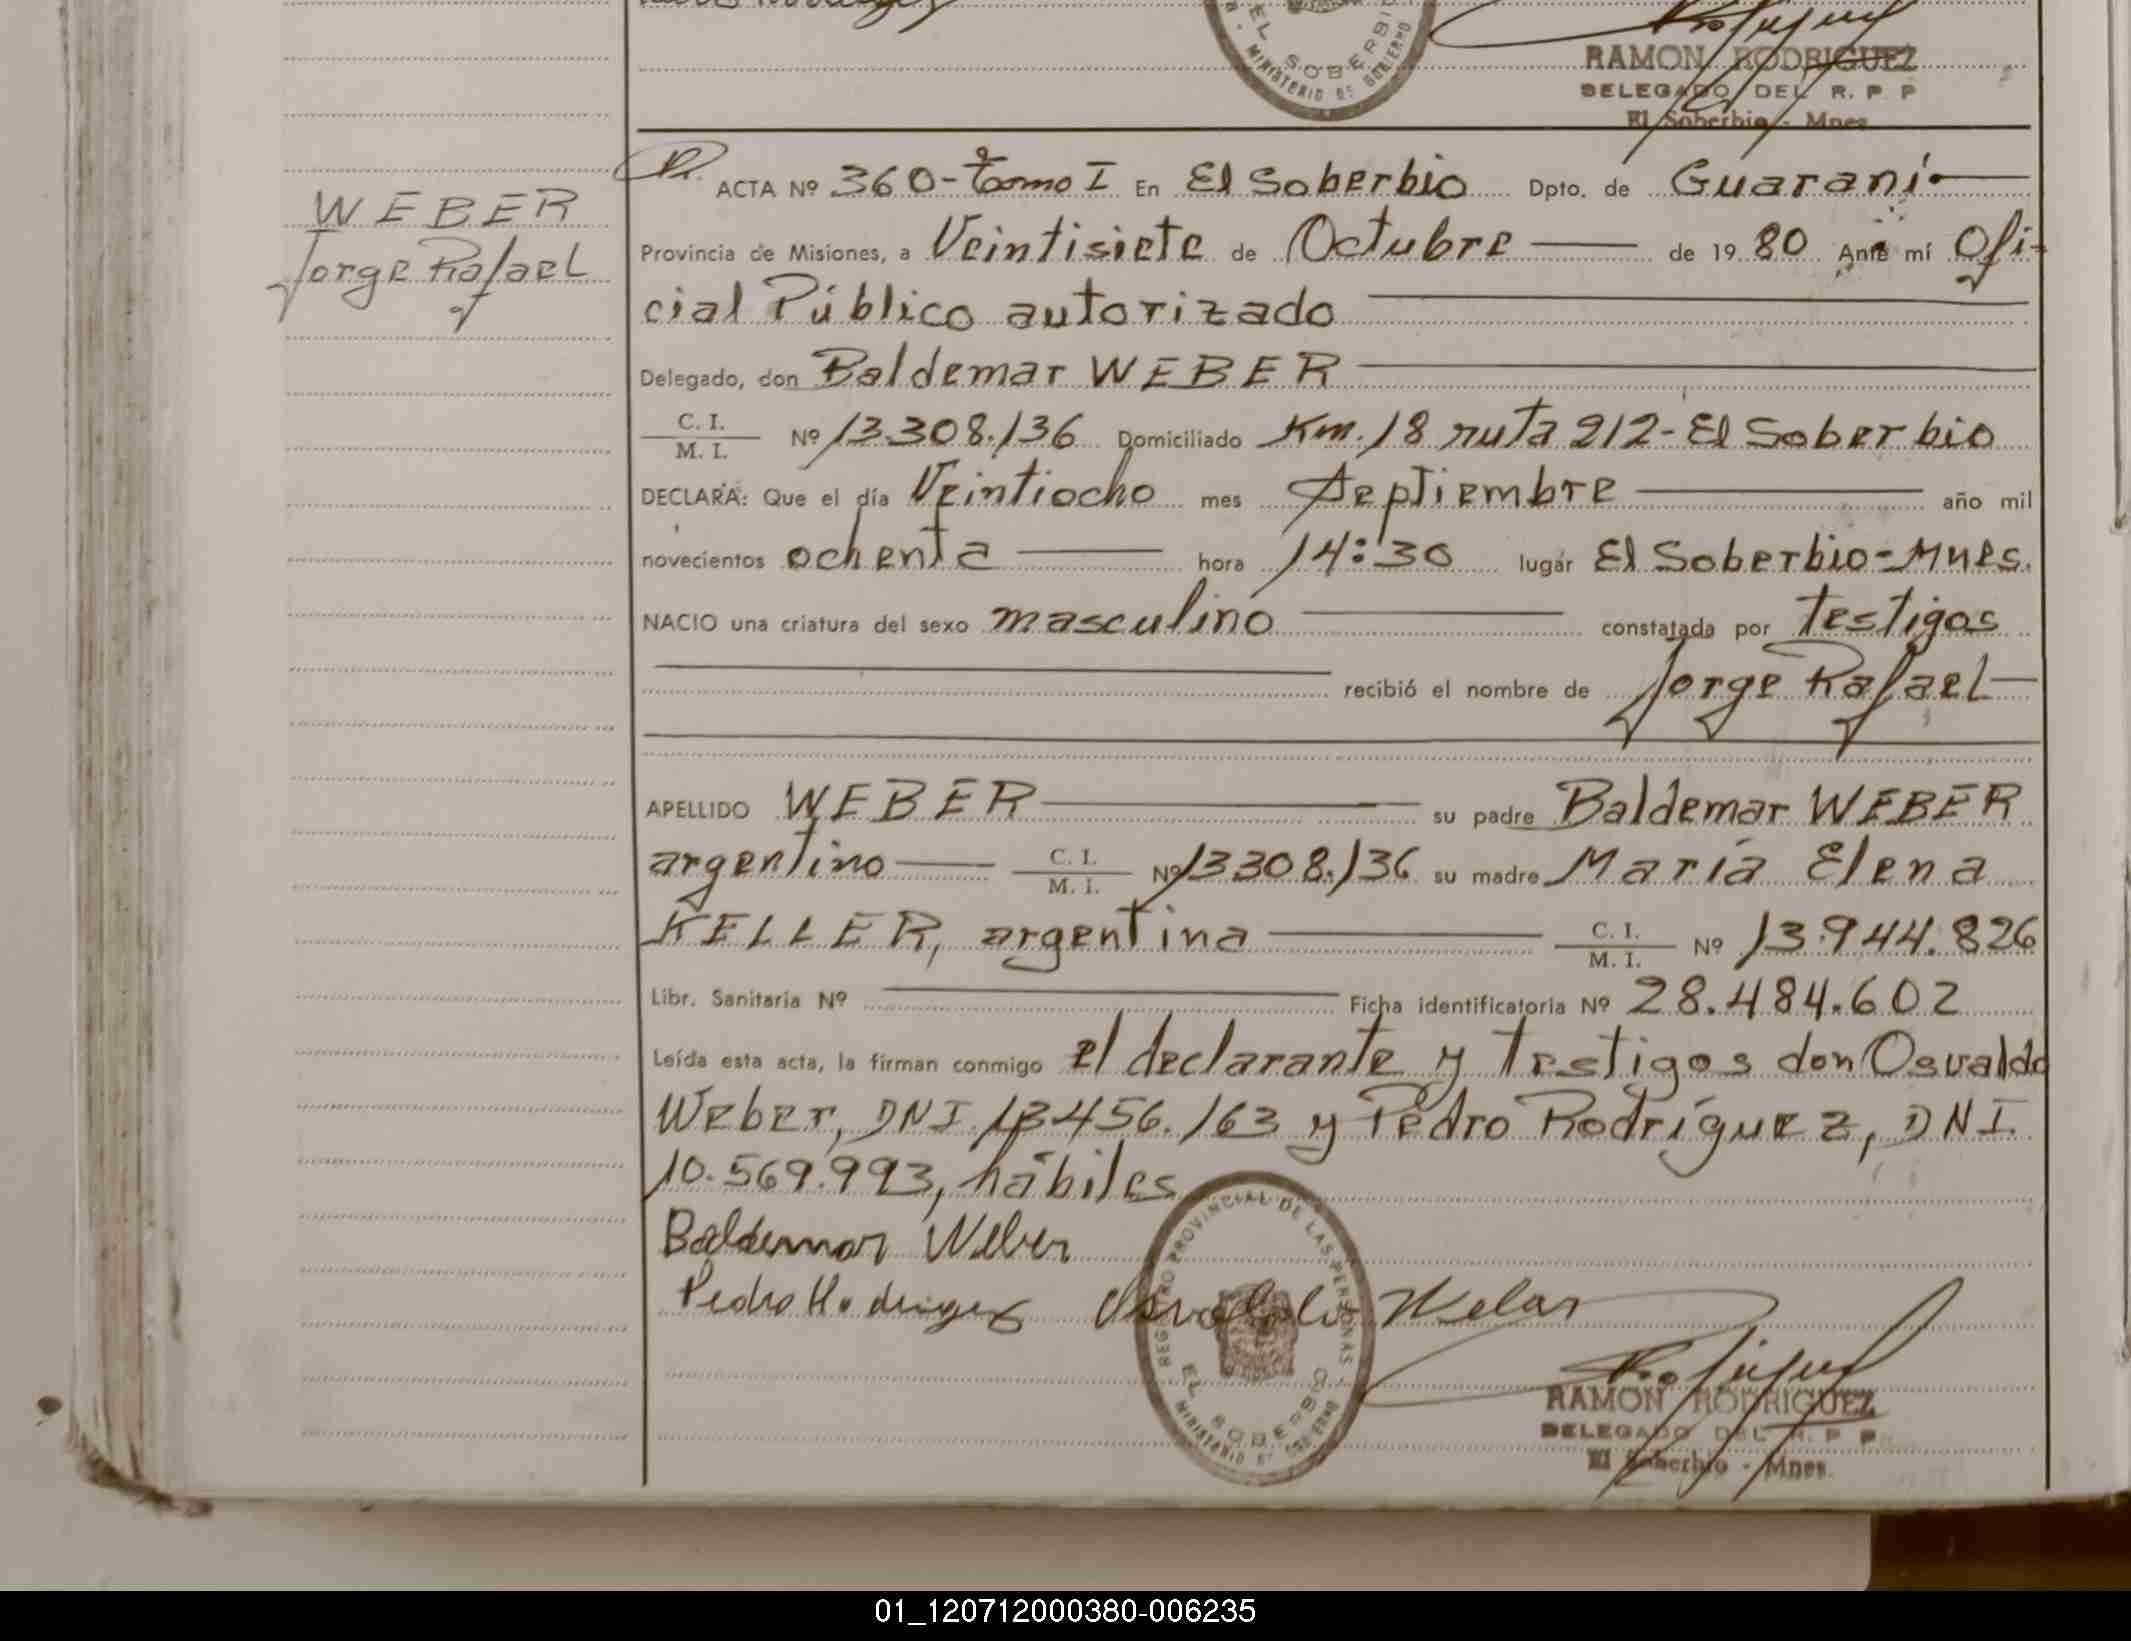 EL SOBERBIO
MINISTERIO DE GOBIERNO
RAMON RODRIGUEZ
DELEGADO DEL R. P P
El Soberbio - Mnes
ACTA Nº 360-tomo I En El Soberbio Dpto. de Guaraní
WEBER
Jorge Rafael
Provincia de Misiones, a Veintisiete de Octubre de 19 80 Ante mí Ofi-
cial Público autorizado
Delegado, don Baldemar WEBER
C. I.
M. I. Nº 13.308.136 Domiciliado Km. 18 ruta 212-El Soberbio
DECLARA: Que el día Veintiocho mes Septiembre año mil
novecientos ochenta hora 14:30 lugar El Soberbio-Mnes.
NACIO una criatura del sexo masculino constatada por testigos
recibió el nombre de Jorge Rafael
APELLIDO WEBER su padre Baldemar WEBER
argentino C. I. M. I. Nº 13308.136 su madre María Elena
KELLER, argentina C. I. M. I. Nº 13.944.826
Libr. Sanitaria Nº Ficha identificatoria Nº 28.484.602
Leída esta acta, la firman conmigo el declarante y testigos don Osvaldo
Weber, DNI. 13456.163 y Pedro Rodríguez, DNI.
10.569.993, hábiles
Baldemar Weber
Pedro Rodriguez Osvaldo Weber
REGISTRO PROVINCIAL DE LAS PERSONAS
EL SOBERBIO
MINISTERIO DE GOBIERNO
RAMON RODRIGUEZ
DELEGADO DEL R. P P
El Soberbio - Mnes.
01_120712000380-006235